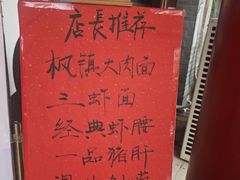 店長推荐
枫镇大肉面
三虾面
经典虾腰
一品猪肝